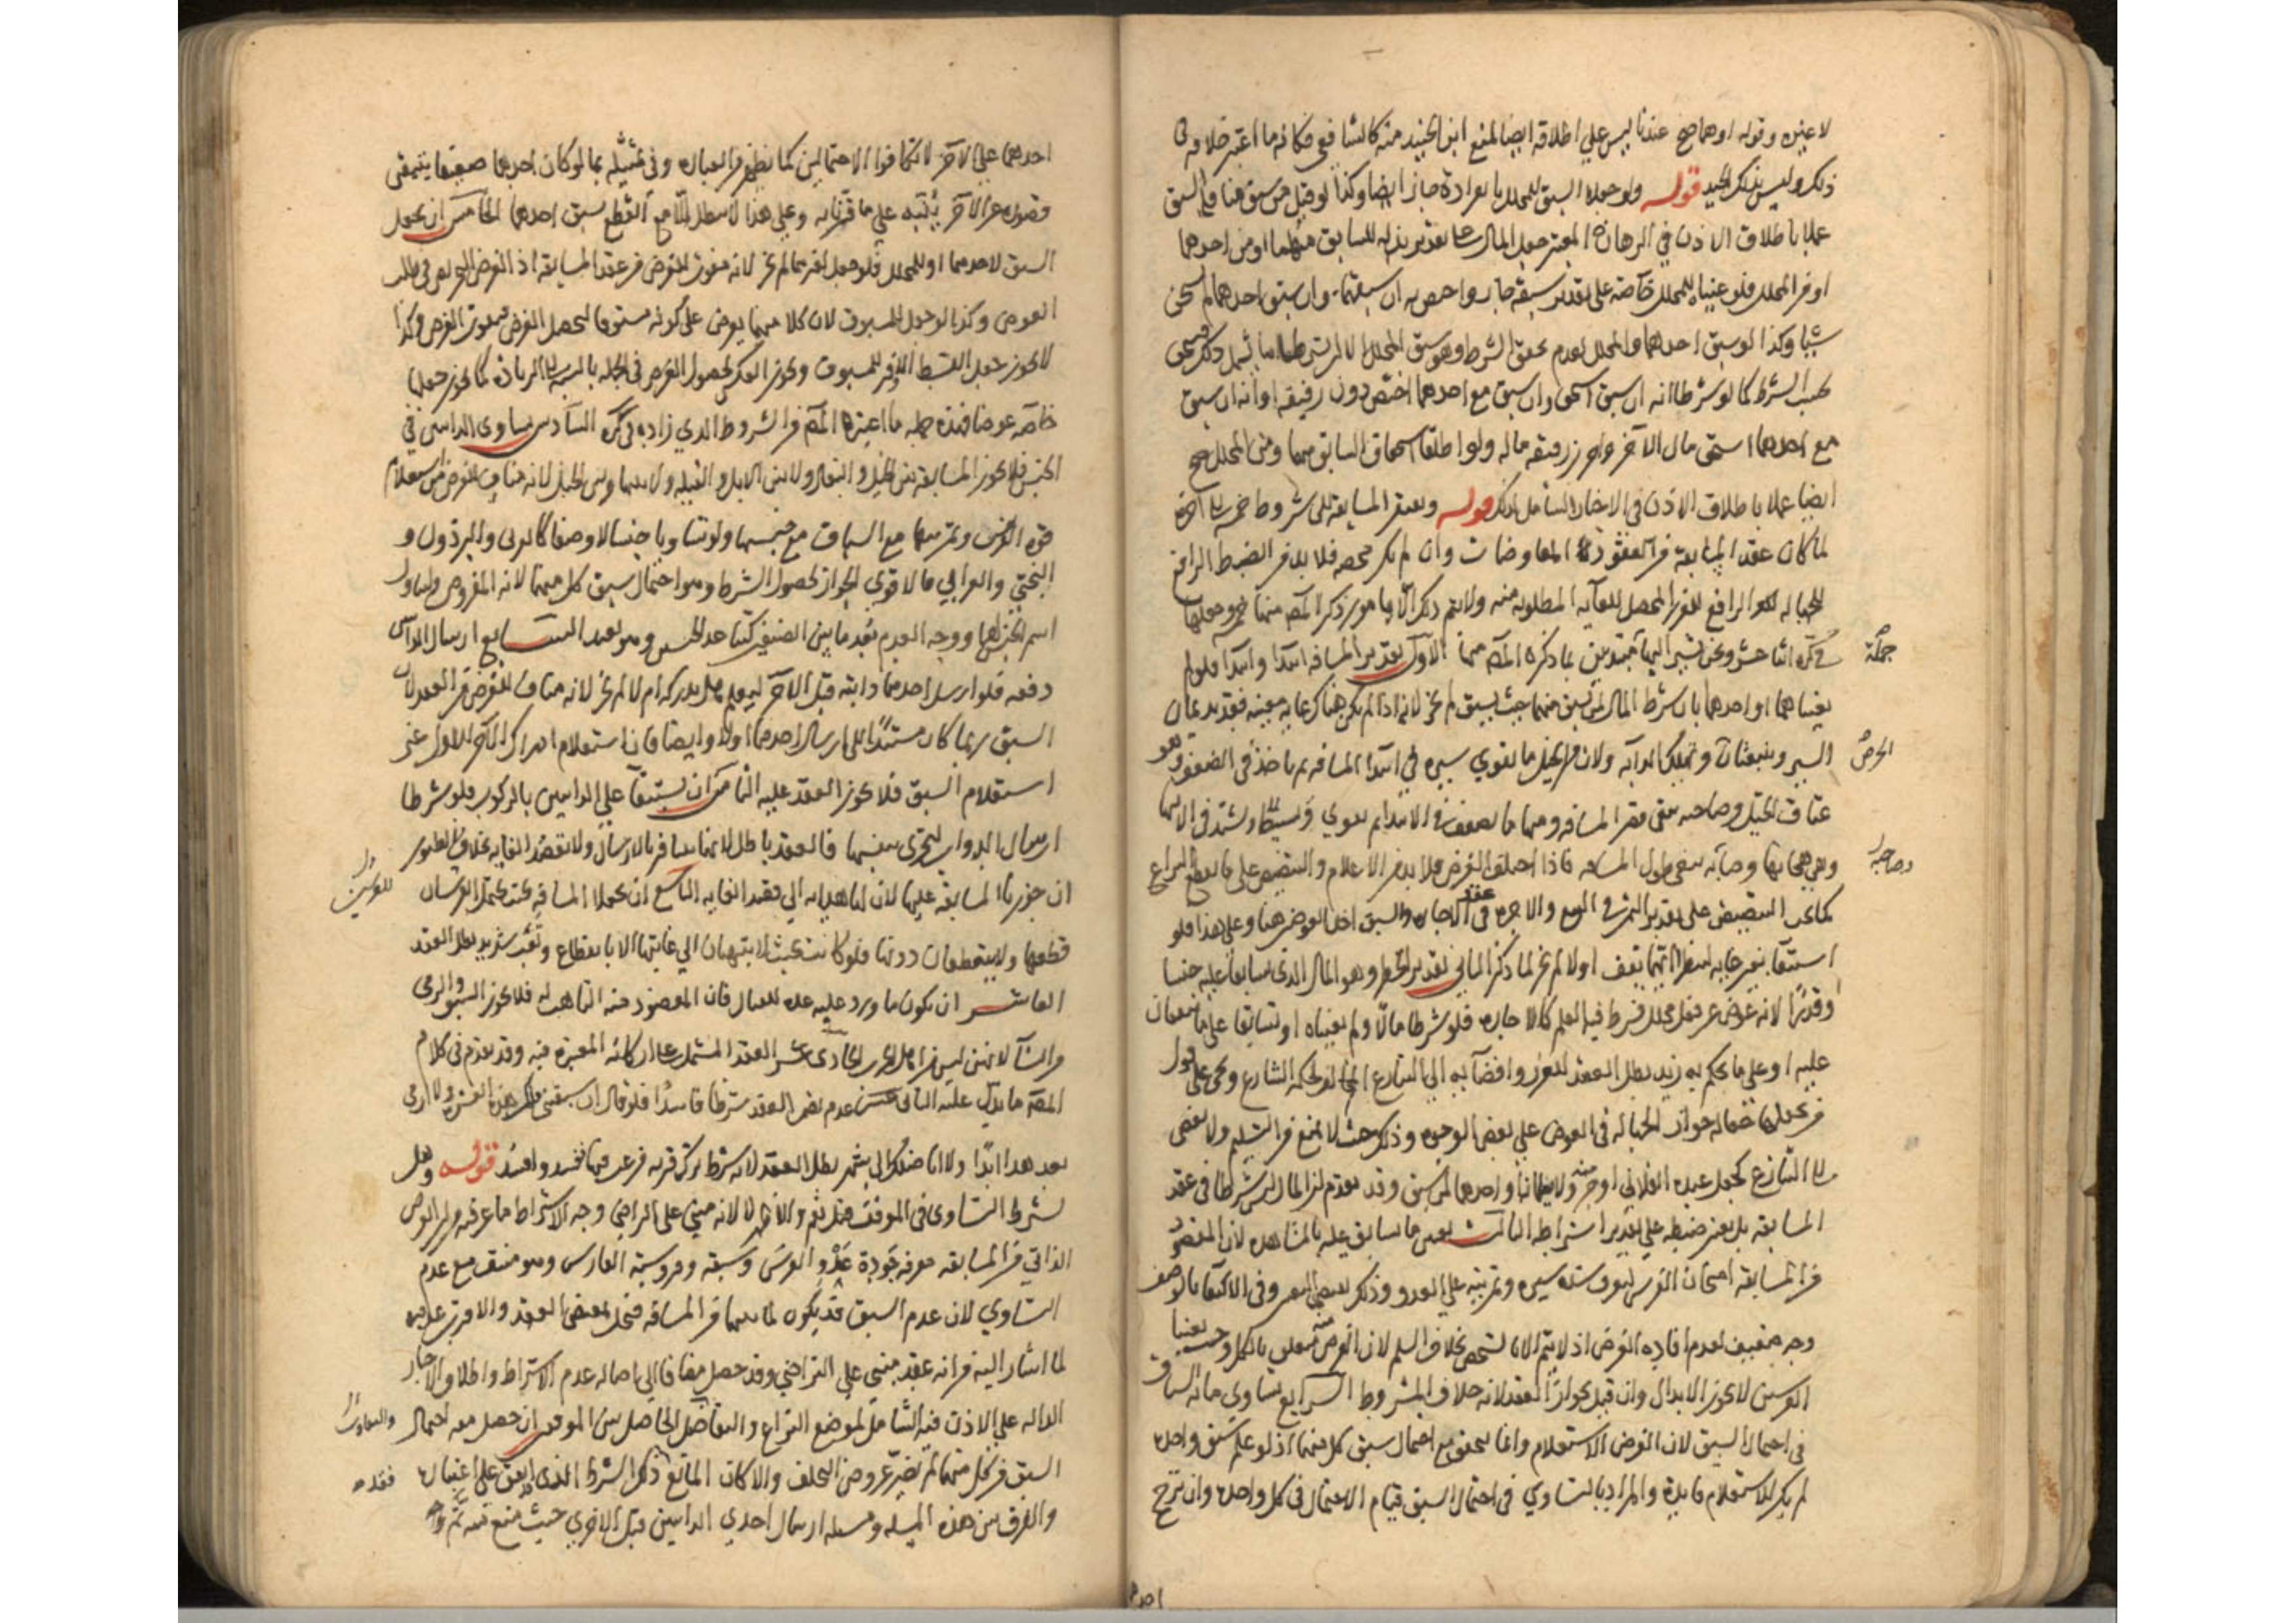 لا غيره وقوله او هما صح عندنا ليس على اطلاقه ايضا لمنع ابن الجنيد منه كالشافعي فكانه ما اعتبر خلافه في
ذلك وليس بذلك الجيد قوله ولو جعلا السبق للمحلل بانفراده جاز ايضا وكذا لو قيل من سبق منا فله السبق
عملا باطلاق الاذن في الرهان المعتبر جعل المال على تقدير بذله للسابق منهما او من احدهما
او من المحلل فلو عيناه للمحلل خاصة على تقدير سبقه جاز واختص به ان سبقهما وان سبق احدهما لم يستحق
شيئا وكذا لو سبق احدهما والمحلل لعدم تحقق الشرط وهو سبق المحلل
بحسب الشرط كما لو شرطا انه ان سبق استحق وان سبق مع احدهما اختص دون رفيقه او انه ان سبق
مع احدهما استحق مال الآخر واحرز رفيقه ماله ولو اطلقا استحقاق السابق منهما ومن المحلل صح
ايضا عملا باطلاق الاذن في الاخبار الشامل لذلك قوله وتفتقر المسابقة الى شروط خمسة الى آخره
لما كان عقد المسابقة من عقود المعاوضات وان لم يكن محضه فلا بد فيه من الضبط الرافع
للجهالة الرافع للغرر المحصل للغاية المطلوبة منه ولا يتم ذلك الا بامور ذكر المص منها خمسة وجعلها
في كره اثنا عشر ونحن نشير اليها مبتدئين بما ذكره المص منها الاول تقدير المسافة ابتداء وانتهاء فلو لم
جملة
يعيناهما او احدهما بان شرط المال لمن سبق منهما حيث يسبق لم يجز لانه اذا لم يكن هناك غاية معينة فقد يديمان
السير وينبعثان وتهلك الدابة ولان من الخيل ما يقوى سيره في ابتداء المسافة ثم ياخذ في الضعف وهو
الحرص
عتاق الخيل وصاحبه يبغي قصر المسافة ومنها ما يضعف في الابتداء ثم يقوى ويشتد في الانتهاء
وهي هجانها وصاحبه يبغي طول المسافة فاذا اختلف الغرض فلا بد من الاعلام والتنصيص على ما يقطع النزاع
وصاحبه
كما يجب التنصيص على تقدير الثمن في البيع والاجرة في عقد الاجارة والسبق احد العوضين هنا وعلى هذا فلو
استبقا بغير غاية لينظر ايهما يقف اولا لم يجز لما ذكر الثاني تقدير الخطر وهو المال الذي تسابقا عليه جنسا
وقدرا لانه عوض عن فعل محلل فشرط فيه العلم كالاجارة فلو شرطا مالا ولم يعيناه او تسابقا على ما يتفقان
عليه او على ما يحكم به زيد بطل العقد للغرر وافضائه الى التنازع المخالف لحكمة الشارع ويجئ على قول
من يجعلها جعالة جواز الجهالة في العوض على بعض الوجوه وذلك حيث لا يمنع من التسليم ولا يفضي
الى التنازع كجعل عبده الفلاني او جزء ولا يعلمانه او احدهما لمن سبق وقد تقدم ان المال ليس شرطا في عقد
المسابقة بل يعتبر ضبطه على تقدير اشتراطه الثالث تعيين ما يسابق عليه بالمشاهدة لان المقصود
من المسابقة امتحان الفرس ليعرف شدة سيره وتمرينه على العدو وذلك يقتضي التعيين وفي الاكتفاء بالوصف
وجه ضعيف لعدم افادته الغرض اذ لا يتم الا بالشخص بخلاف السلم لان الغرض منه متعلق بالكلي وحيث يعينا
الفرسين لا يجوز الابدال وان قيل بجواز العقد لانه خلاف المشروط الرابع تساوي ما به السباق
في احتمال السبق لان الغرض الاستعلام وانما يتحقق مع احتمال سبق كل منهما اذ لو علم سبق واحد
لم يكن للاستعلام فايدة والمراد بالتساوي في احتمال السبق قيام الاحتمال في كل واحد وان ترجح
احدهما
احدهما على الآخر لا تكافؤ الاحتمالين كما يظهر من العبارة وفي تمثيله بما لو كان احدهما ضعيفا يتيقن
قصوره عن الآخر ينبه على ما قررناه وعلى هذا لا يبطل الا مع القطع بسبق احدهما الخامس ان يجعل
السبق لاحدهما او للمحلل فلو جعل لغيرهما لم يجز لانه مفوت للغرض من عقد المسابقة اذ الغرض التحريص في طلب
العوض وكذا لو جعل للمسبوق لان كلا منهما يحرص على كونه مسبوقا ليحصل العوض فيفوت الغرض وكذا
لا يجوز جعل القسط الاوفر للمسبوق ويجوز العكس لحصول الغرض في الجملة بالنسبة الى الزيادة كما يجوز جعلها
خاصة عوضا فهذه جملة ما اعتبره المص من الشروط الذي زاده في كره السادس تساوي الدابتين في
الجنس فلا يجوز المسابقة بين الخيل والبغال ولا بين الابل والفيلة ولا بينهما وبين الخيل لانه مناف للغرض من استعلام
قوة الفرس وتمرينها مع السباق مع جنسها ولو تساويا جنسا لا وصفا كالعربي والبرذون و
البختي والعرابي فالاقوى الجواز لحصول الشرط وهو احتمال سبق كل منهما لانه المفروض ولتناول
اسم الجنس لهما ووجه العدم بعد ما بين الصنفين كتباعد الجنس وهو بعيد السابع ارسال الدابتين
دفعة فلو ارسل احدهما دابته قبل الآخر ليعلم هل يدركه ام لا لم يجز لانه مناف للغرض من العقد لان
السبق ربما كان مستندا الى ارسال احدهما اولا وايضا فان استعلام ادراك الآخر للاول غير
استعلام السبق فلا يجوز العقد عليه الثامن ان يستبقا على الدابتين بالركوب فلو شرطا
ارسال الدواب لتجري بنفسها فالعقد باطل لانها تتنافر بالارسال ولا تقصد الغاية بخلاف الطيور
ان جوزنا المسابقة عليها لان لها هداية الى قصد الغاية التاسع ان يجعلا المسافة بحيث يحتمل الفرسان
للفرسين
قطعها ولا ينقطعان دونها فلو كانت بحيث لا ينتهيان الى غايتها الا بانقطاع وتعب شديد بطل العقد
العاشر ان يكون ما ورد عليه عدة للقتال فان المقصود منه التاهب له فلا يجوز السبق والرمي
من النساء لانهن ليس من اهل الحرب الحادي عشر العقد المشتمل على اركانه المعتبرة فيه وقد تقدم في كلام
المص ما يدل عليه الثاني عشر عدم تضمن العقد شرطا فاسدا فلو قال ان سبقتني فلك هذه العشرة ولا ارمي
بعد هذا ابدا ولا اناضلك الى شهر بطل العقد لانه شرط ترك قربة مرغب فيها ففسد وافسد قوله وهل
يشترط التساوي في الموقف قيل نعم والاظهر لا لانه مبني على التراضي وجه الاشتراط ما عرفته من ان الغرض
الذاتي من المسابقة معرفة جودة عدو الفرس وسبقه وفروسية الفارس وهو منتف مع عدم
التساوي لان عدم السبق قد يكون لما بينهما من المسافة فيخل بمقتضى العقد والاقوى عدمه
لما اشار اليه من انه عقد مبني على التراضي وقد حصل مضافا الى اصالة عدم الاشتراط واطلاق الاخبار
الدالة على الاذن فيه الشامل لموضع النزاع والتفاضل الحاصل بين الموقفين ان حصل معه احتمال
والتفاوت
السبق من كل منهما لم يضر عروض التخلف والا كان المانع ذلك الشرط الذي اتفق على اعتباره
فقده
والفرق بين هذه المسئلة ومسئلة ارسال احدى الدابتين قبل الاخرى حيث منع منه ثم